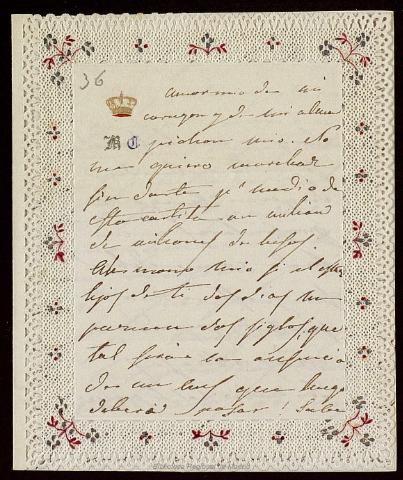 36
amor mio de mi
corazon y de mi alma
M C pichon mio. No
me quiero marchar
sin darte pr medio de
esta cartita un millon
de millones de besos.
Ah monono mio si el estar
lejos de ti dos dias me
parecen dos siglos que
tal será la ausencia
de un mes que luego
deberá pasar!
Biblioteca Regional de Madrid